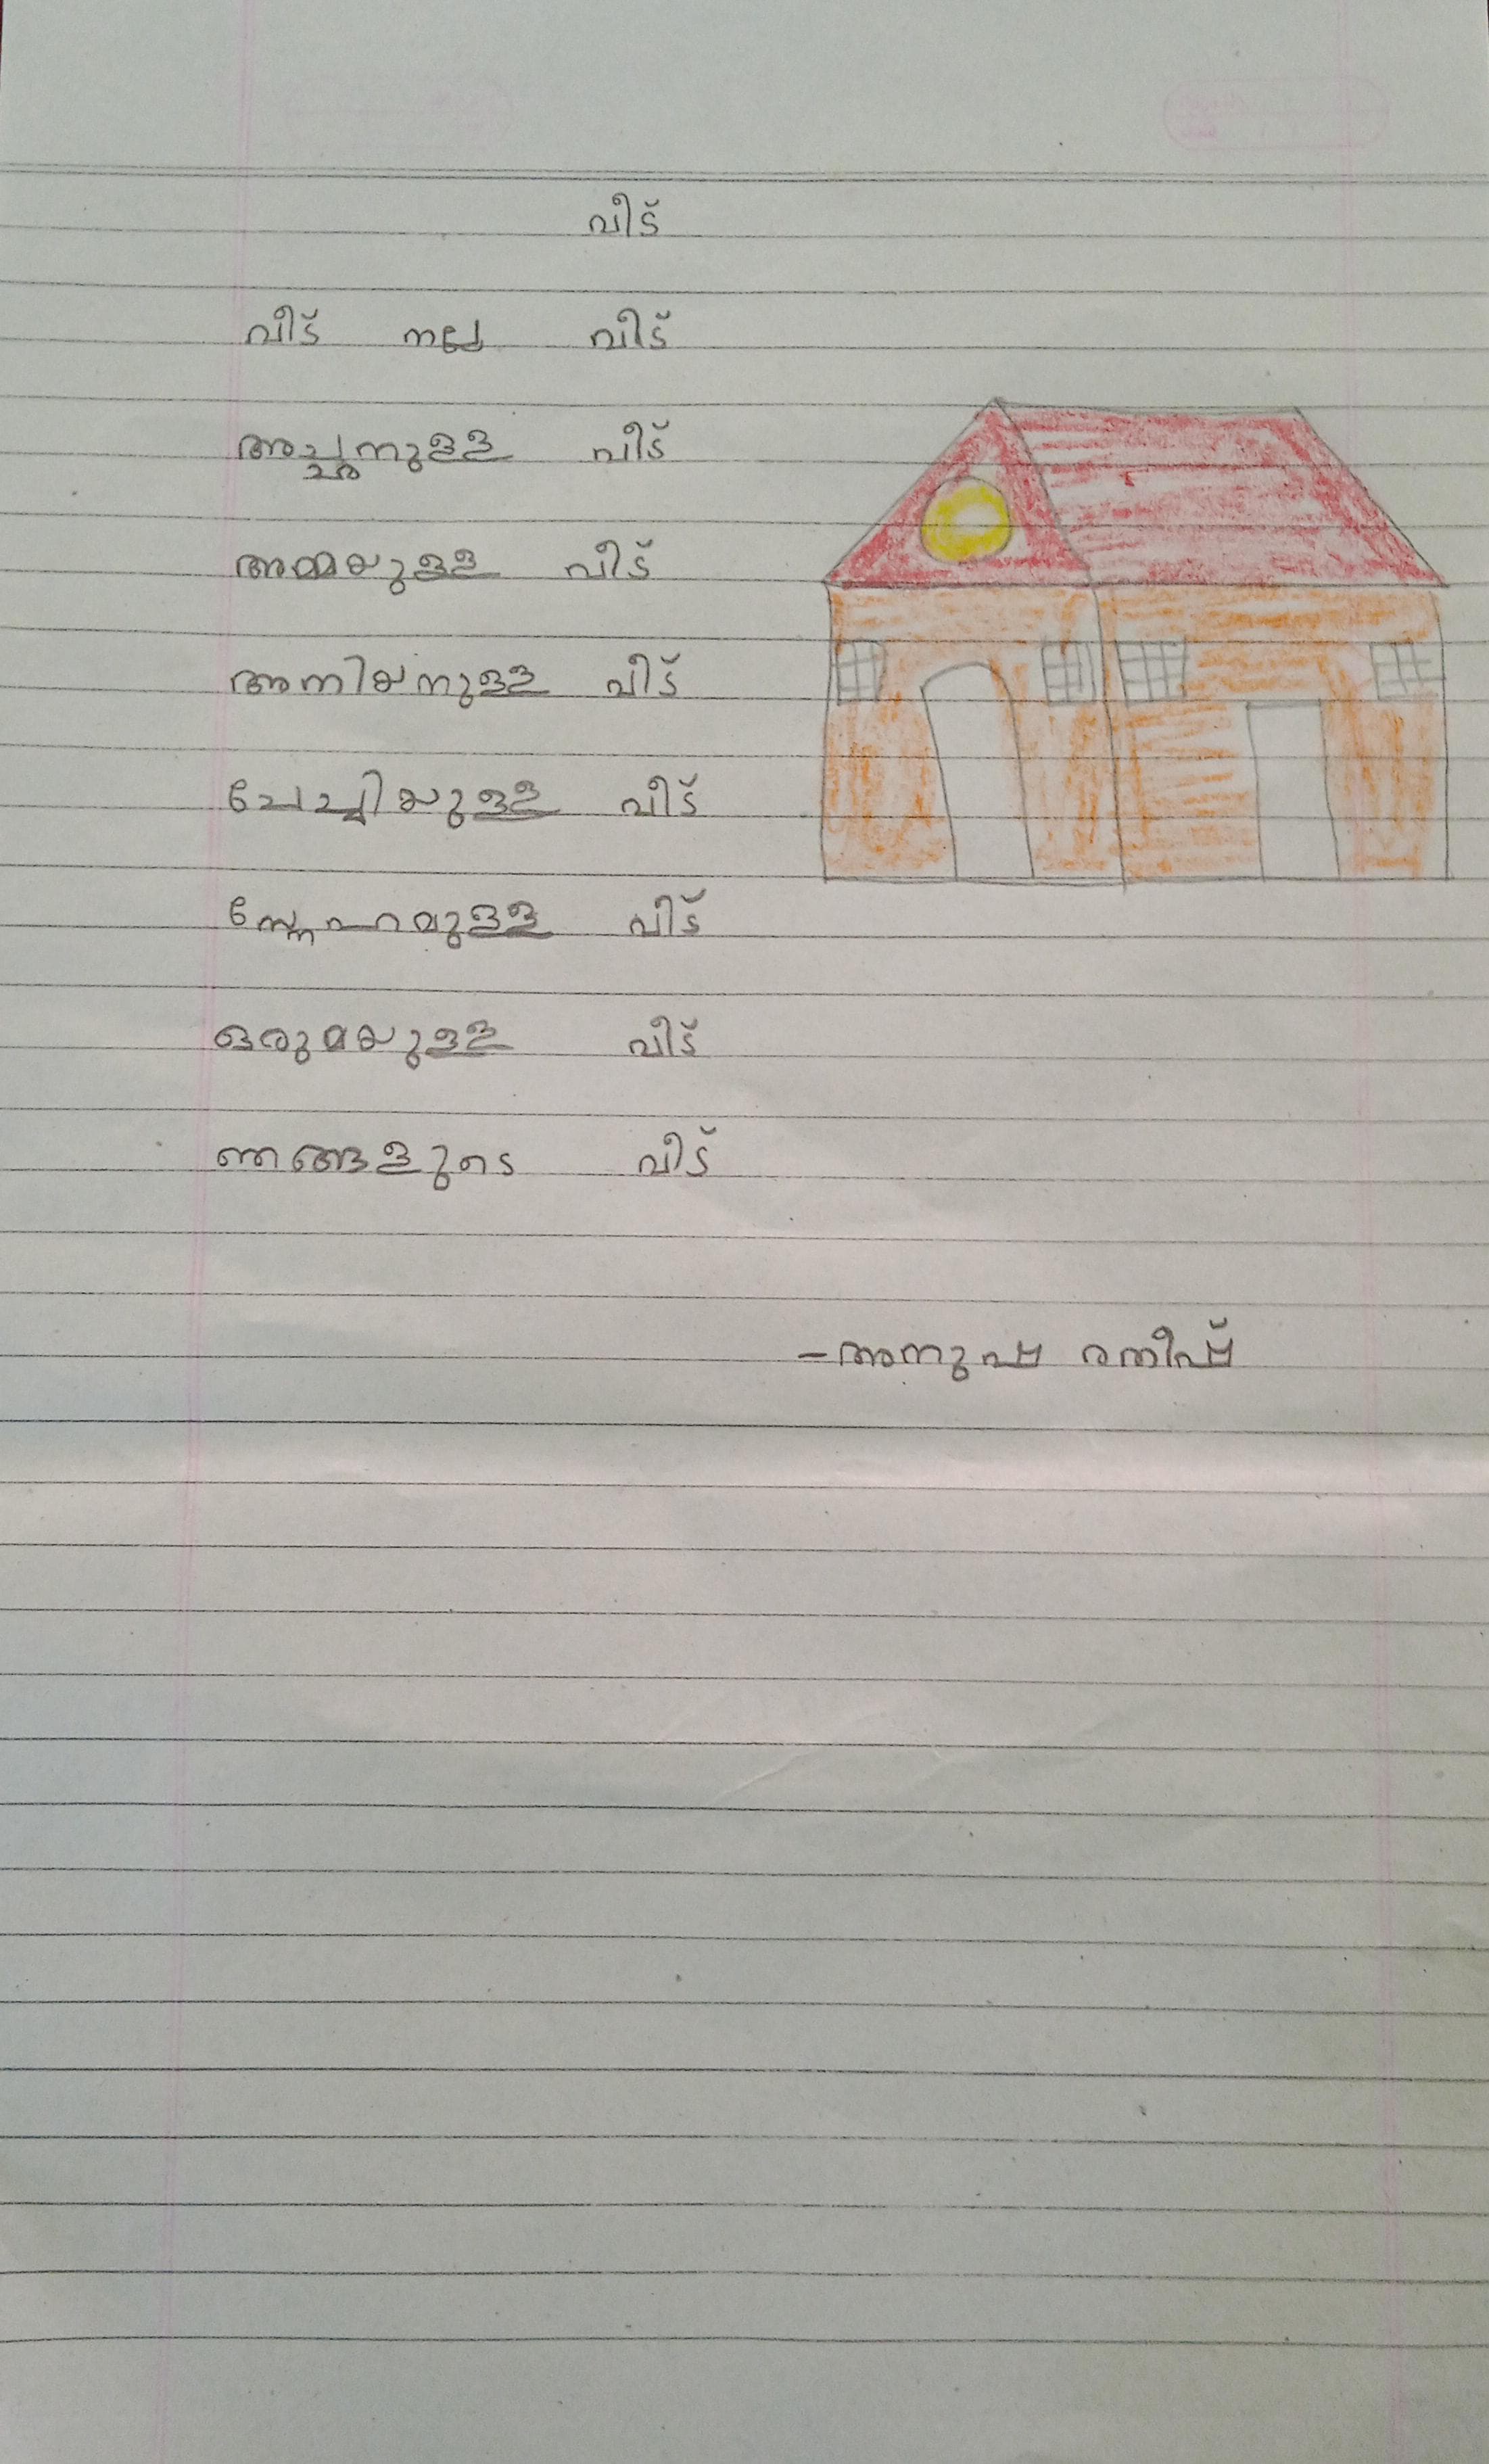 വീട്
വീട് നല്ല വീട്
അച്ഛനുള്ള വീട്
അമ്മയുള്ള വീട്
അനിയനുള്ള വീട്
ചേച്ചിയുള്ള വീട്
സ്നേഹമുള്ള വീട്
ഒരുമയുള്ള വീട്
ഞങ്ങളുടെ വീട്